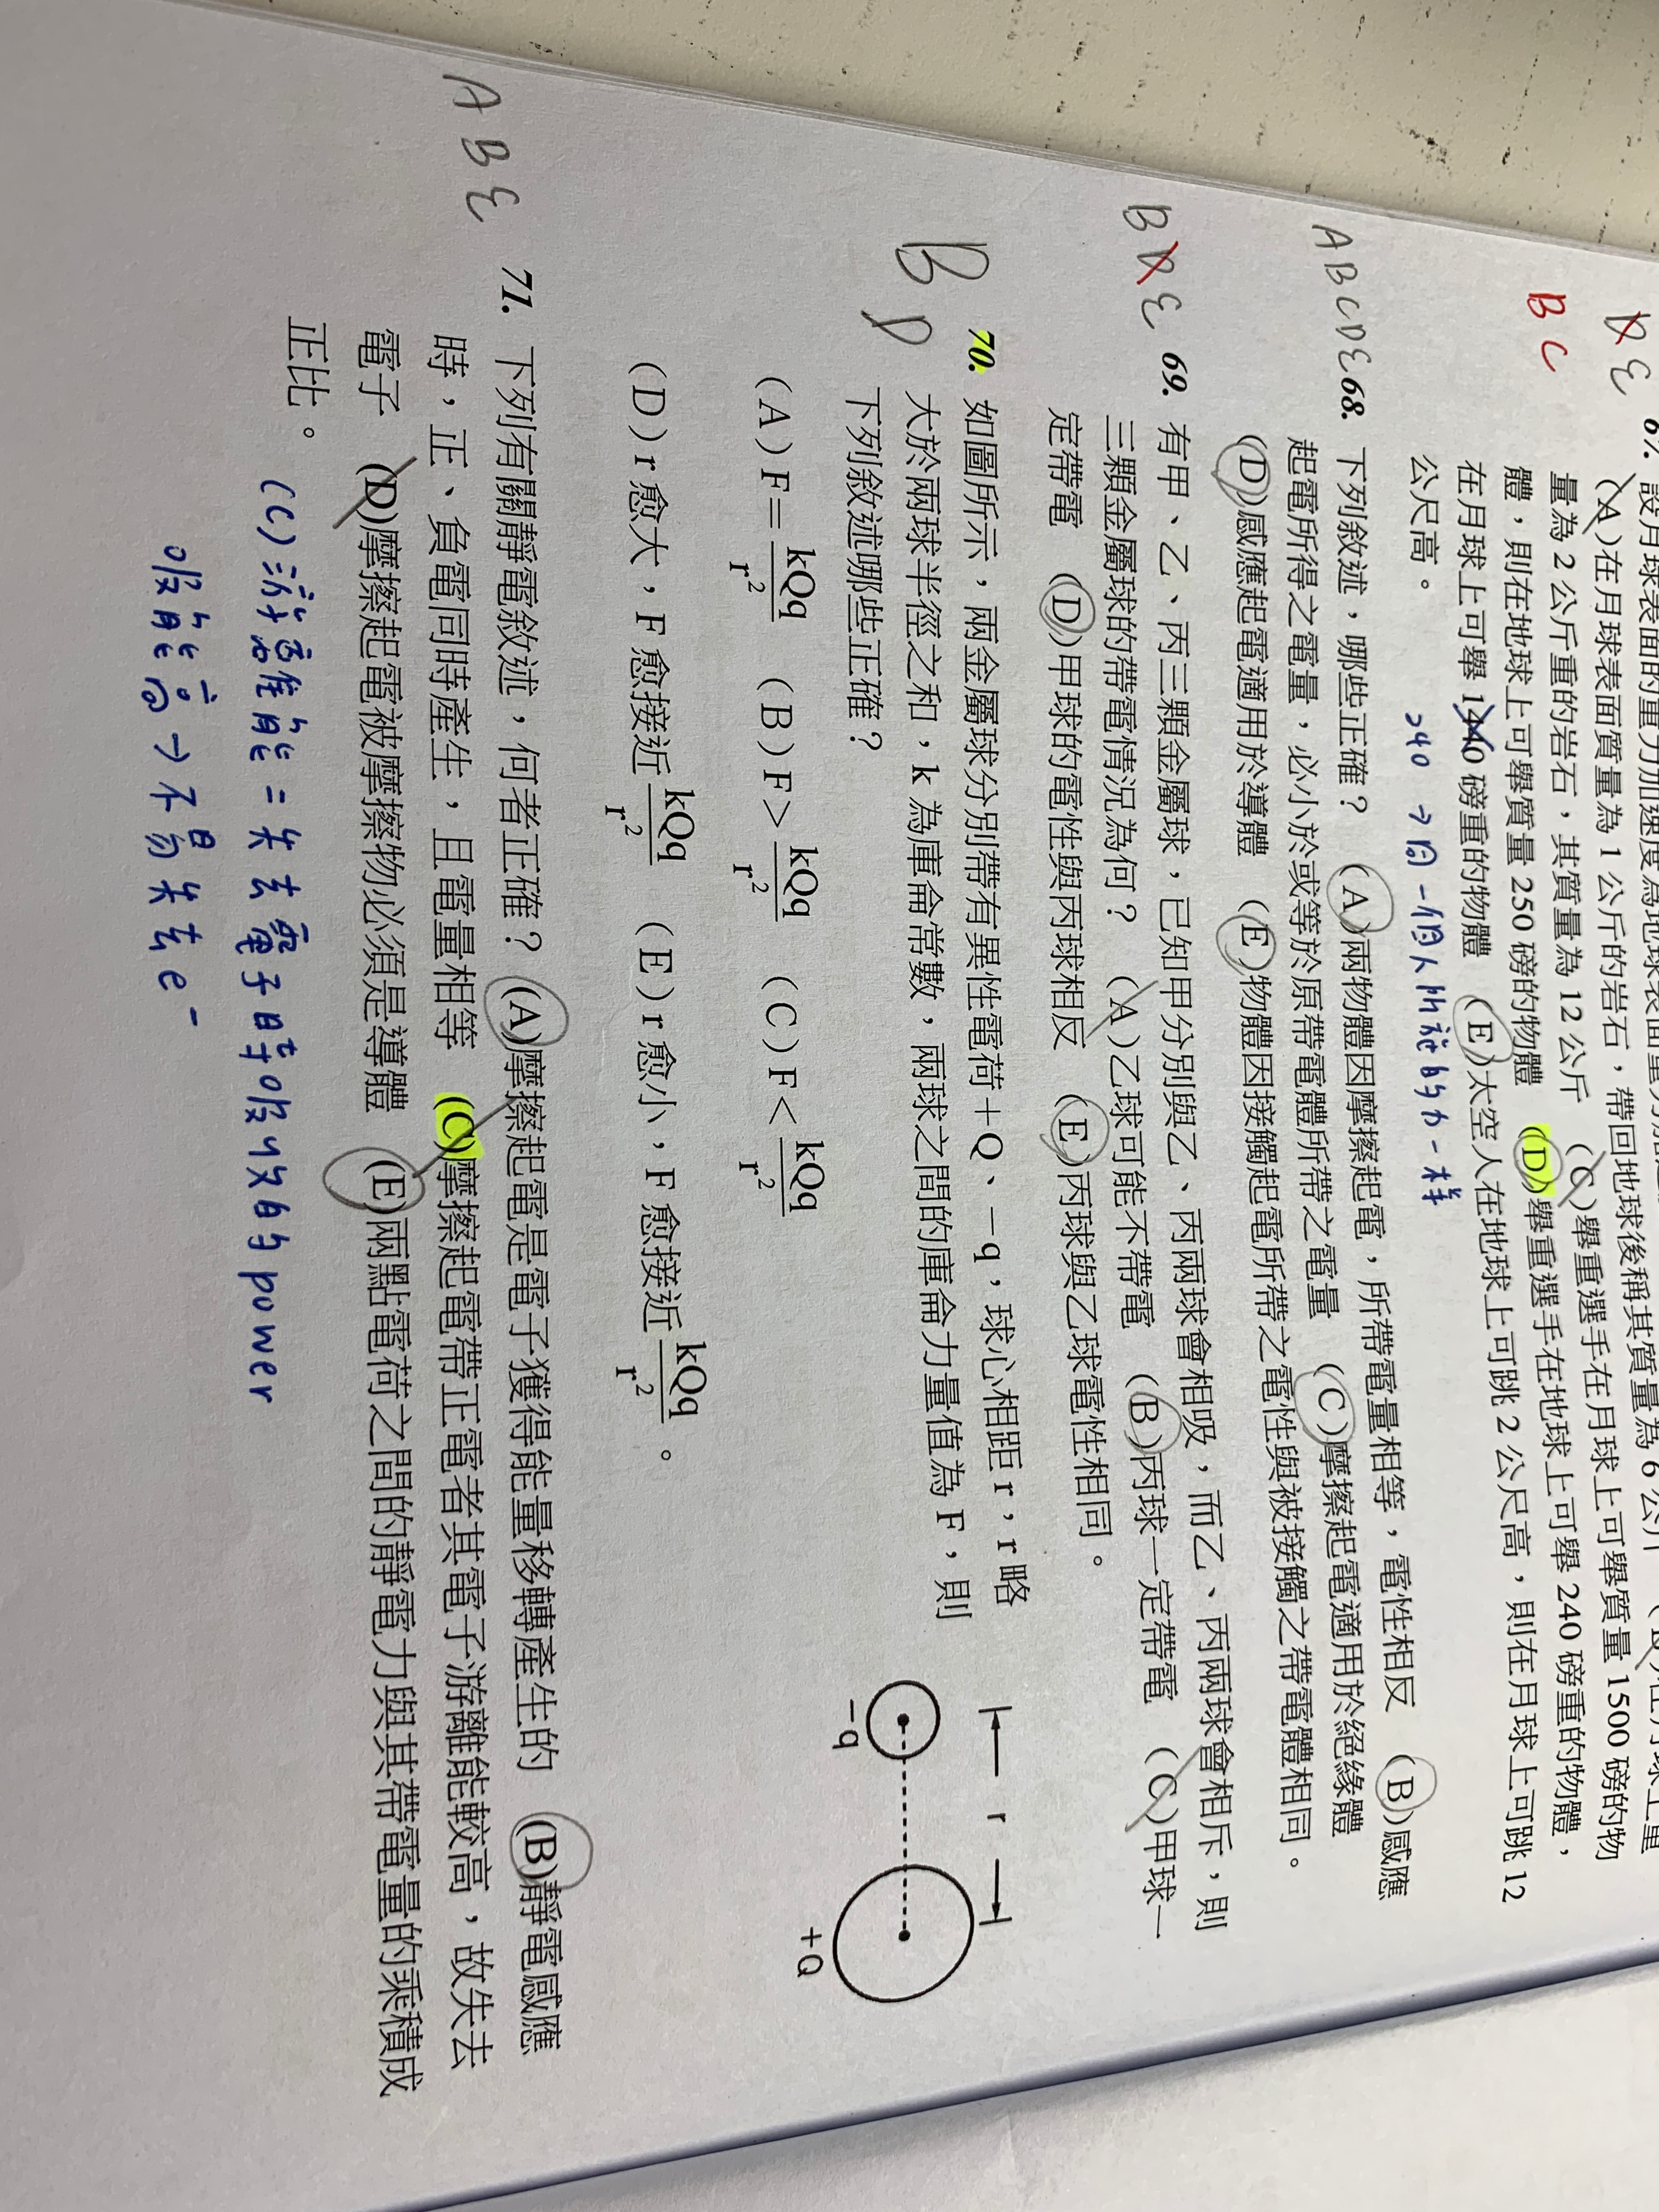 67. 設月球表面的重力加速度為地球表面重力加速
(A)在月球表面質量為 1 公斤的岩石，帶回地球後稱其質量為 6 公斤
量為 2 公斤重的岩石，其質量為 12 公斤 (C)舉重選手在月球上可舉質量 1500 磅的物
體，則在地球上可舉質量 250 磅的物體 (D)舉重選手在地球上可舉 240 磅重的物體，
在月球上可舉 1440 磅重的物體 (E)太空人在地球上可跳 2 公尺高，則在月球上可跳 12
公尺高。
240 → 因一個人所施的力一樣
XE
BC
ABCDE 68. 下列敘述，哪些正確？ (A)兩物體因摩擦起電，所帶電量相等，電性相反 (B)感應
起電所得之電量，必小於或等於原帶電體所帶之電量 (C)摩擦起電適用於絕緣體
(D)感應起電適用於導體 (E)物體因接觸起電所帶之電性與被接觸之帶電體相同。
BXE 69. 有甲、乙、丙三顆金屬球，已知甲分別與乙、丙兩球會相吸，而乙、丙兩球會相斥，則
三顆金屬球的帶電情況為何？ (A)乙球可能不帶電 (B)丙球一定帶電 (C)甲球一
定帶電 (D)甲球的電性與丙球相反 (E)丙球與乙球電性相同。
BD 70. 如圖所示，兩金屬球分別帶有異性電荷＋Q、－q，球心相距 r，r 略
大於兩球半徑之和，k 為庫侖常數，兩球之間的庫侖力量值為 F，則
下列敘述哪些正確？
(A) F＝kQq/r² (B) F＞kQq/r² (C) F＜kQq/r²
(D) r 愈大，F 愈接近 kQq/r² (E) r 愈小，F 愈接近 kQq/r²。
r
－q
＋Q
ABE 71. 下列有關靜電敘述，何者正確？ (A)摩擦起電是電子獲得能量移轉產生的 (B)靜電感應
時，正、負電同時產生，且電量相等 (C)摩擦起電帶正電者其電子游離能較高，故失去
電子 (D)摩擦起電被摩擦物必須是導體 (E)兩點電荷之間的靜電力與其帶電量的乘積成
正比。
(C) 游離能 = 失去電子時吸收的 power
吸能高 → 不易失去 e⁻